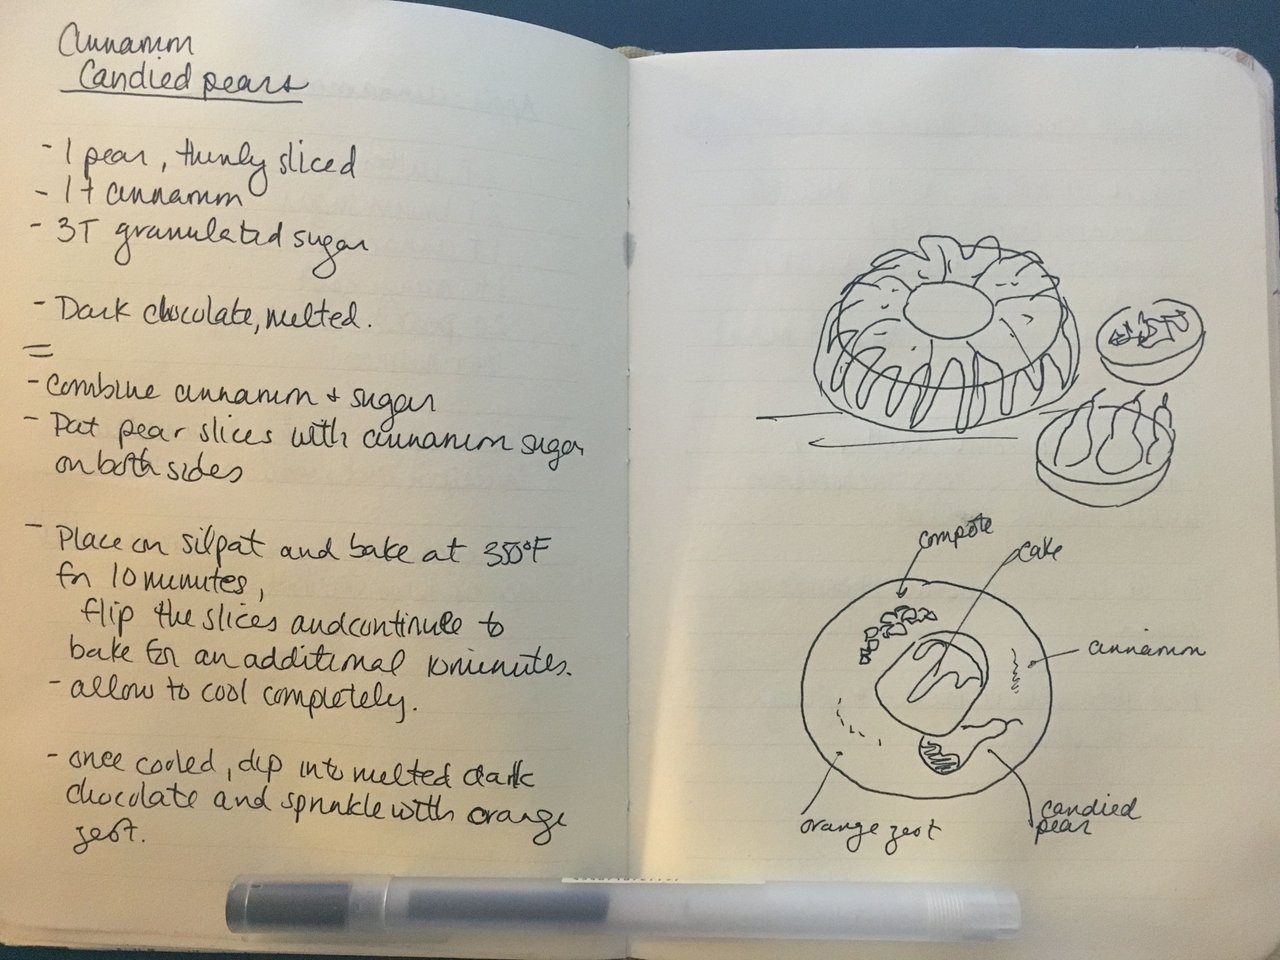 Cinnamon
Candied pears
- 1 pear, thinly sliced
- 1t cinnamon
- 3T granulated sugar
- Dark chocolate, melted.
=
- Combine cinnamon + sugar
- Pat pear slices with cinnamon sugar
on both sides
- Place on silpat and bake at 350°F
for 10 minutes,
flip the slices and continue to
bake for an additional 10 minutes.
- allow to cool completely.
- once cooled, dip into melted dark
chocolate and sprinkle with orange
zest.
compote
cake
cinnamon
orange zest
candied
pear